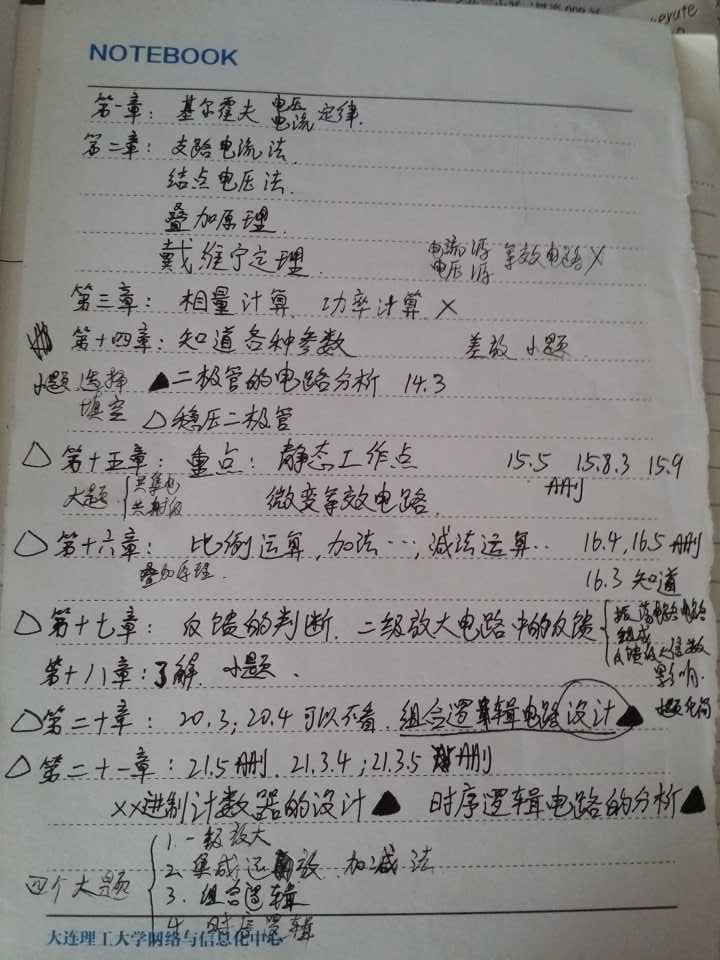 NOTEBOOK
第一章: 基尔霍夫 电压 电流 定律.
第二章: 支路电流法.
结点电压法.
叠加原理.
戴维宁定理.
电流源 电压源 等效电路 X
第三章: 相量计算. 功率计算 X
第十四章: 知道各种参数 差放 小题
小题 选择 填空
▲二极管的电路分析 14.3
△稳压二极管
△ 第十五章: 重点: 静态工作点 15.5 15.8.3 15.9 删
大题 { 共集电 共射极
微变等效电路.
△ 第十六章: 比例运算, 加法…, 减法运算.. 16.4, 16.5 删
叠加原理. 16.3 知道
△ 第十七章: 反馈的判断. 二级放大电路中的反馈 { 振荡电路 电路 组成 反馈放大倍数 影响.
第十八章: 了解. 小题.
△第二十章: 20.3; 20.4 可以不看. 组合逻辑电路设计▲ 小题化简
△ 第二十一章: 21.5 删. 21.3.4; 21.3.5 删
XX进制计数器的设计▲ 时序逻辑电路的分析▲
四个大题 { 1. 一级放大
2. 集成运放 加减法
3. 组合逻辑
4. 时序逻辑
大连理工大学网络与信息化中心